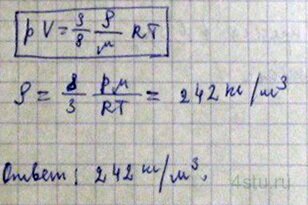 pV = 3/8 ρ/μ RT
ρ = 8/3 pμ/RT = 242 кг/м³
Ответ: 242 кг/м³.
4stu.ru